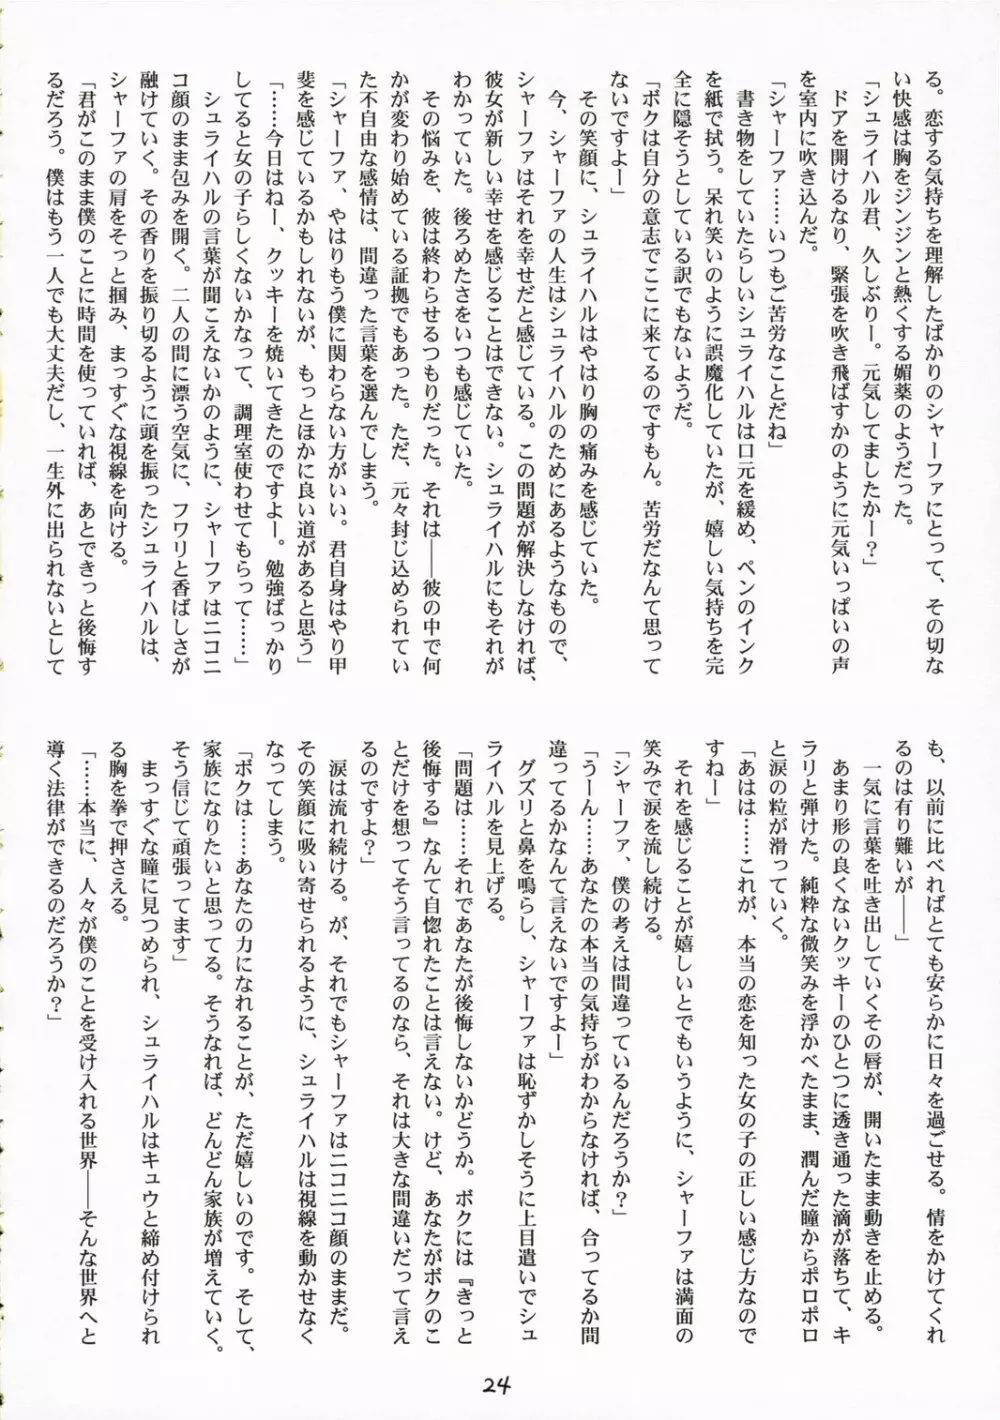 る。恋する気持ちを理解したばかりのシャーファにとって、その切な
い快感は胸をジンジンと熱くする媚薬のようだった。
「シュライハル君、久しぶりー。元気してましたかー？」
ドアを開けるなり、緊張を吹き飛ばすかのように元気いっぱいの声
を室内に吹き込んだ。
「シャーファ……いつもご苦労なことだね」
書き物をしていたらしいシュライハルは口元を緩め、ペンのインク
を紙で拭う。呆れ笑いのように誤魔化していたが、嬉しい気持ちを完
全に隠そうとしている訳でもないようだ。
「ボクは自分の意志でここに来てるのですもん。苦労だなんて思って
ないですよー」
その笑顔に、シュライハルはやはり胸の痛みを感じていた。
今、シャーファの人生はシュライハルのためにあるようなもので、
シャーファはそれを幸せだと感じている。この問題が解決しなければ、
彼女が新しい幸せを感じることはできない。シュライハルにもそれが
わかっていた。後ろめたさをいつも感じていた。
その悩みを、彼は終わらせるつもりだった。それは――彼の中で何
かが変わり始めている証拠でもあった。ただ、元々封じ込められてい
た不自由な感情は、間違った言葉を選んでしまう。
「シャーファ、やはりもう僕に関わらない方がいい。君自身はやり甲
斐を感じているかもしれないが、もっとほかに良い道があると思う」
「……今日はねー、クッキーを焼いてきたのですよー。勉強ばっかり
してると女の子らしくないかなって、調理室使わせてもらって……」
シュライハルの言葉が聞こえないかのように、シャーファはニコニ
コ顔のまま包みを開く。二人の間に漂う空気に、フワリと香ばしさが
融けていく。その香りを振り切るように頭を振ったシュライハルは、
シャーファの肩をそっと掴み、まっすぐな視線を向ける。
「君がこのまま僕のことに時間を使っていれば、あとできっと後悔す
るだろう。僕はもう一人でも大丈夫だし、一生外に出られないとして
も、以前に比べればとても安らかに日々を過ごせる。情をかけてくれ
るのは有り難いが――」
一気に言葉を吐き出していくその唇が、開いたまま動きを止める。
あまり形の良くないクッキーのひとつに透き通った滴が落ちて、キ
ラリと弾けた。純粋な微笑みを浮かべたまま、潤んだ瞳からポロポロ
と涙の粒が滑っていく。
「あはは……これが、本当の恋を知った女の子の正しい感じ方なので
すねー」
それを感じることが嬉しいとでもいうように、シャーファは満面の
笑みで涙を流し続ける。
「シャーファ、僕の考えは間違っているんだろうか？」
「うーん……あなたの本当の気持ちがわからなければ、合ってるか間
違ってるかなんて言えないですよー」
グズリと鼻を鳴らし、シャーファは恥ずかしそうに上目遣いでシュ
ライハルを見上げる。
「問題は……それであなたが後悔しないかどうか。ボクには『きっと
後悔する』なんて自惚れたことは言えない。けど、あなたがボクのこ
とだけを想ってそう言ってるのなら、それは大きな間違いだって言え
るのですよ？」
涙は流れ続ける。が、それでもシャーファはニコニコ顔のままだ。
その笑顔に吸い寄せられるように、シュライハルは視線を動かせなく
なってしまう。
「ボクは……あなたの力になれることが、ただ嬉しいのです。そして、
家族になりたいと思ってる。そうなれば、どんどん家族が増えていく。
そう信じて頑張ってます」
まっすぐな瞳に見つめられ、シュライハルはキュウと締め付けられ
る胸を拳で押さえる。
「……本当に、人々が僕のことを受け入れる世界――そんな世界へと
導く法律ができるのだろうか？」
24